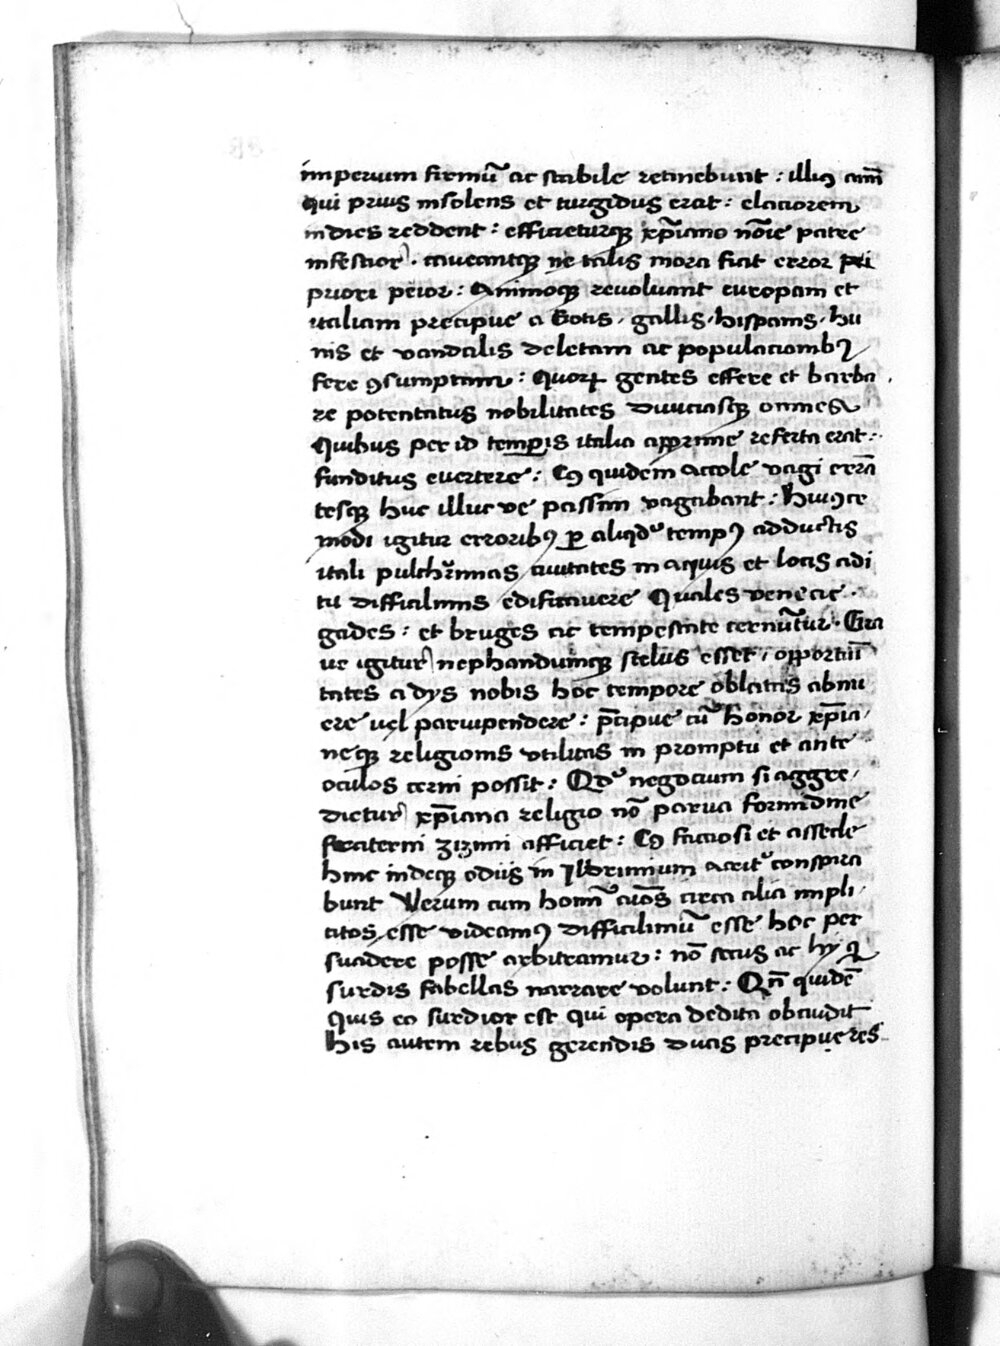 imperium firmū ac stabile retinebunt : illiꝯ aīm
qui prius insolens et turgidus erat : elaciorem
indies reddent : efficieturqꝫ xp̄iano noīe patre
infestior . caueantqꝫ ne talis mora fiat error pri
priori peior : Animoqꝫ reuoluant europam et
italiam precipue a Gotis . gallis . hispanis . hu
nis et vandalis deletam ac populacionibꝯ
fere ꝯsumptam : Quoꝝ gentes effere et barba
re potentatus nobilitates diuiciasqꝫ omnes
Quibus per id temporis italia apprime referta erat :
funditus euertere : Cꝯ quidem accole vagi errā
tesqꝫ huc illuc ve passim vagabant : Huiꝯce
modi igitur erroribꝯ ꝑ aliqdᵒ tempꝯ adductis
itali pulchͬrimas ciuitates in aquis et locis adi
tu difficilimis edificauere Quales veneciae .
gades : et bruges ac tempestate cernūtur . Gra
ue igitur nephandumqꝫ scelus esset , opportuni
tates a dijs nobis hoc tempore oblatas abnu
ere uel paruipendere : p̄cipue cū honor xp̄ia
neqꝫ religionis vtilitas in promptu et ante
oculos cerni possit : Qdᵒ negocium si aggre
dietur xp̄iana religio nō parua formidine
fraterni zizimi afficiet : Cꝯ facciosi et assecle
hinc indeqꝫ odiis in Ibrimium acriter conspira
bunt Verum cum homīn aīos circa alia impli
citos esse videamꝯ difficilimū esse hoc per
suadere posse arbitramur : nō secus ac hij q
surdis fabellas narrare volunt : Qn̄ quidē
quis eo surdior est qui opera dedita obaudit
His autem rebus gerendis ducis precipue res